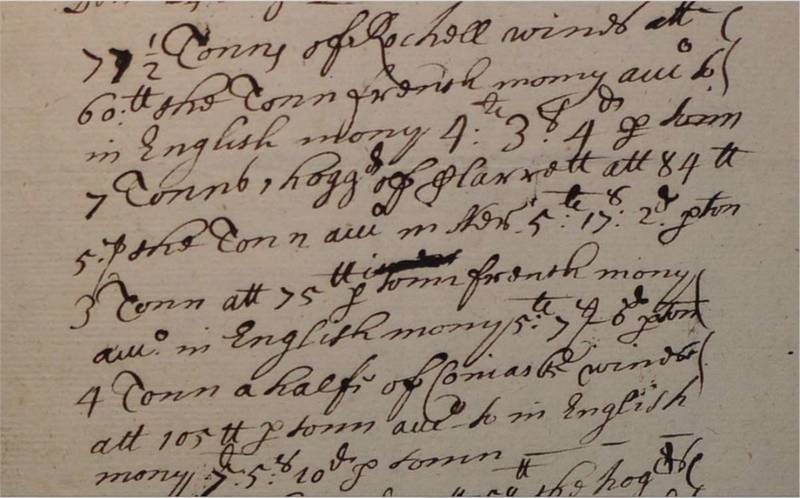 77 1/2 Tonns of Rochell winds att
60:tt the Tonn french mony au.o to
in English mony 4:tt 3:s 4d p tonn
7 Tonns, 1 hoggd of Clarrett att 84 tt
5:p the Tonn aud in ster 5:tt 17:s 2d pton
3 Tonn att 75 tt p tonn french mony
auo. in English mony 5:tt 7s 6d pton
4 Tonn a halfe of winds
att 105 tt p tonn aud to in English
mony 7: 5:s 10d p tonn
the hog